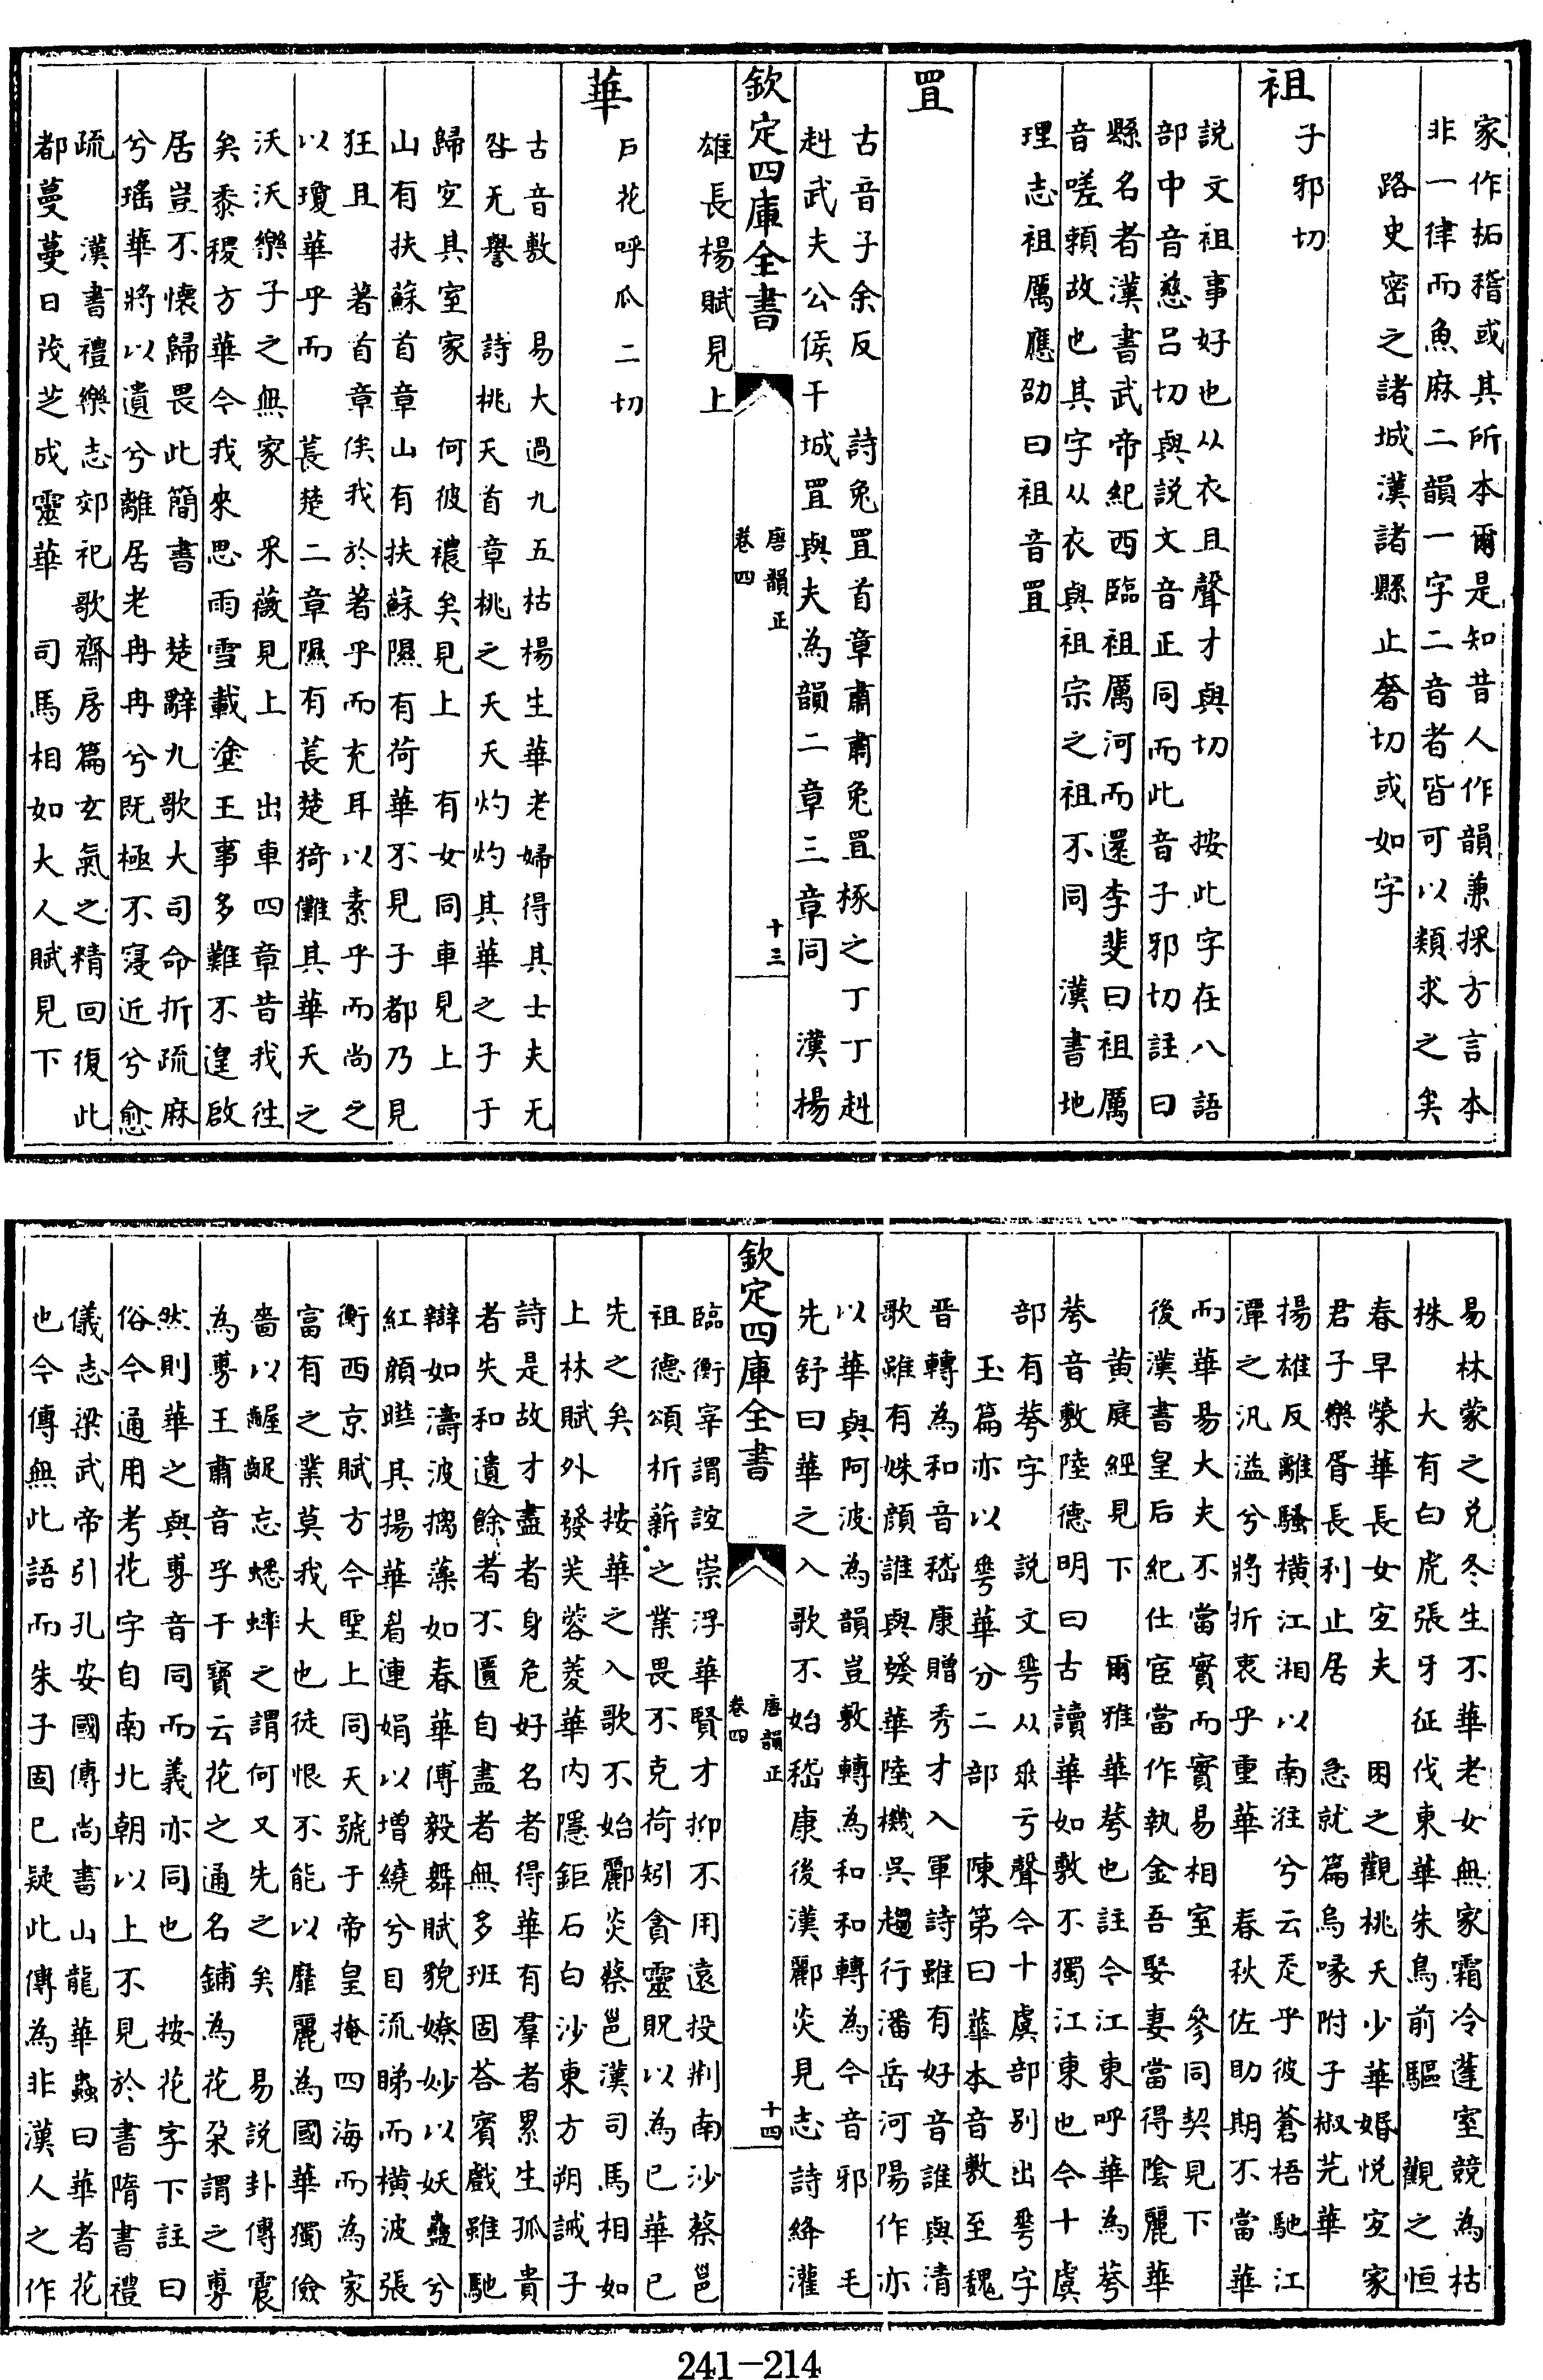 家作柘稽或其所本爾是知昔人作韻兼採方言本
非一律而魚麻二韻一字二音者皆可以類求之矣
路史密之諸城漢諸縣止奢切或如字
祖
子邪切
説文祖事好也从衣且聲才與切　按此字在八語
部中音慈呂切與説文音正同而此音子邪切註曰
縣名者漢書武帝紀西臨祖厲河而還李斐曰祖厲
音嗟賴故也其字从衣與祖宗之祖不同　漢書地
理志祖厲應劭曰祖音罝
罝
古音子余反　詩兔罝首章肅肅兔罝椓之丁丁赳
赳武夫公侯干城罝與夫為韻二章三章同　漢揚
欽定四庫全書
唐韻正
卷四
十三
雄長楊賦見上
華
戶花呼瓜二切
古音敷　易大過九五枯楊生華老婦得其士夫无
咎无譽　詩桃夭首章桃之夭夭灼灼其華之子于
歸宜其室家　何彼襛矣見上　有女同車見上
山有扶蘇首章山有扶蘇隰有荷華不見子都乃見
狂且　著首章俟我於著乎而充耳以素乎而尚之
以瓊華乎而　萇楚二章隰有萇楚猗儺其華夭之
沃沃樂子之無家　采薇見上　出車四章昔我往
矣黍稷方華今我來思雨雪載塗王事多難不遑啟
居豈不懷歸畏此簡書　楚辭九歌大司命折疏麻
兮瑤華將以遺兮離居老冉冉兮既極不寖近兮愈
疏　漢書禮樂志郊祀歌齋房篇玄氣之精回復此
都蔓蔓日茂芝成靈華　司馬相如大人賦見下
易林蒙之兌冬生不華老女無家霜冷蓬室競為枯
株　大有白虎張牙征伐東華朱鳥前驅　觀之恒
春早榮華長女宜夫　困之觀桃夭少華婚悅宜家
君子樂胥長利止居　急就篇烏喙附子椒芫華
揚雄反離騷橫江湘以南淮兮云走乎彼蒼梧馳江
潭之汎溢兮將折衷乎重華　春秋佐助期不當華
而華易大夫不當實而實易相室　參同契見下
後漢書皇后紀仕宦當作執金吾娶妻當得陰麗華
黃庭經見下　爾雅華荂也註今江東呼華為荂
荂音敷陸德明曰古讀華如敷不獨江東也今十虞
部有荂字　説文𠌶从𠂹亏聲今十虞部別出𠌶字
玉篇亦以𠌶華分二部　陳第曰華本音敷至魏
晉轉為和音嵇康贈秀才入軍詩雖有好音誰與清
歌雖有姝顔誰與發華陸機吳趨行潘岳河陽作亦
以華與阿波為韻豈敷轉為和和轉為今音邪　毛
先舒曰華之入歌不始嵇康後漢酈炎見志詩絳灌
欽定四庫全書
唐韻正
卷四
十四
臨衡宰謂誼崇浮華賢才抑不用遠投荆南沙蔡邕
祖德頌析薪之業畏不克荷矧貪靈貺以為已華已
先之矣　按華之入歌不始酈炎蔡邕漢司馬相如
上林賦外發芙蓉菱華內隱鉅石白沙東方朔誡子
詩是故才盡者身危好名者得華有羣者累生孤貴
者失和遺餘者不匱自盡者無多班固荅賓戲雖馳
辯如濤波摛藻如春華傅毅舞賦貌嫽妙以妖蠱兮
紅顔曄其揚華眉連娟以增繞兮目流睇而橫波張
衡西京賦方今聖上同天號于帝皇掩四海而為家
富有之業莫我大也徒恨不能以靡麗為國華獨儉
嗇以齷齪忘蟋蟀之謂何又先之矣　易説卦傳震
為旉王肅音孚干寶云花之通名鋪為花朶謂之旉
然則華之與旉音同而義亦同也　按花字下註曰
俗今通用考花字自南北朝以上不見於書隋書禮
儀志梁武帝引孔安國傳尚書山龍華蟲曰華者花
也今傳無此語而朱子固已疑此傳為非漢人之作
241-214